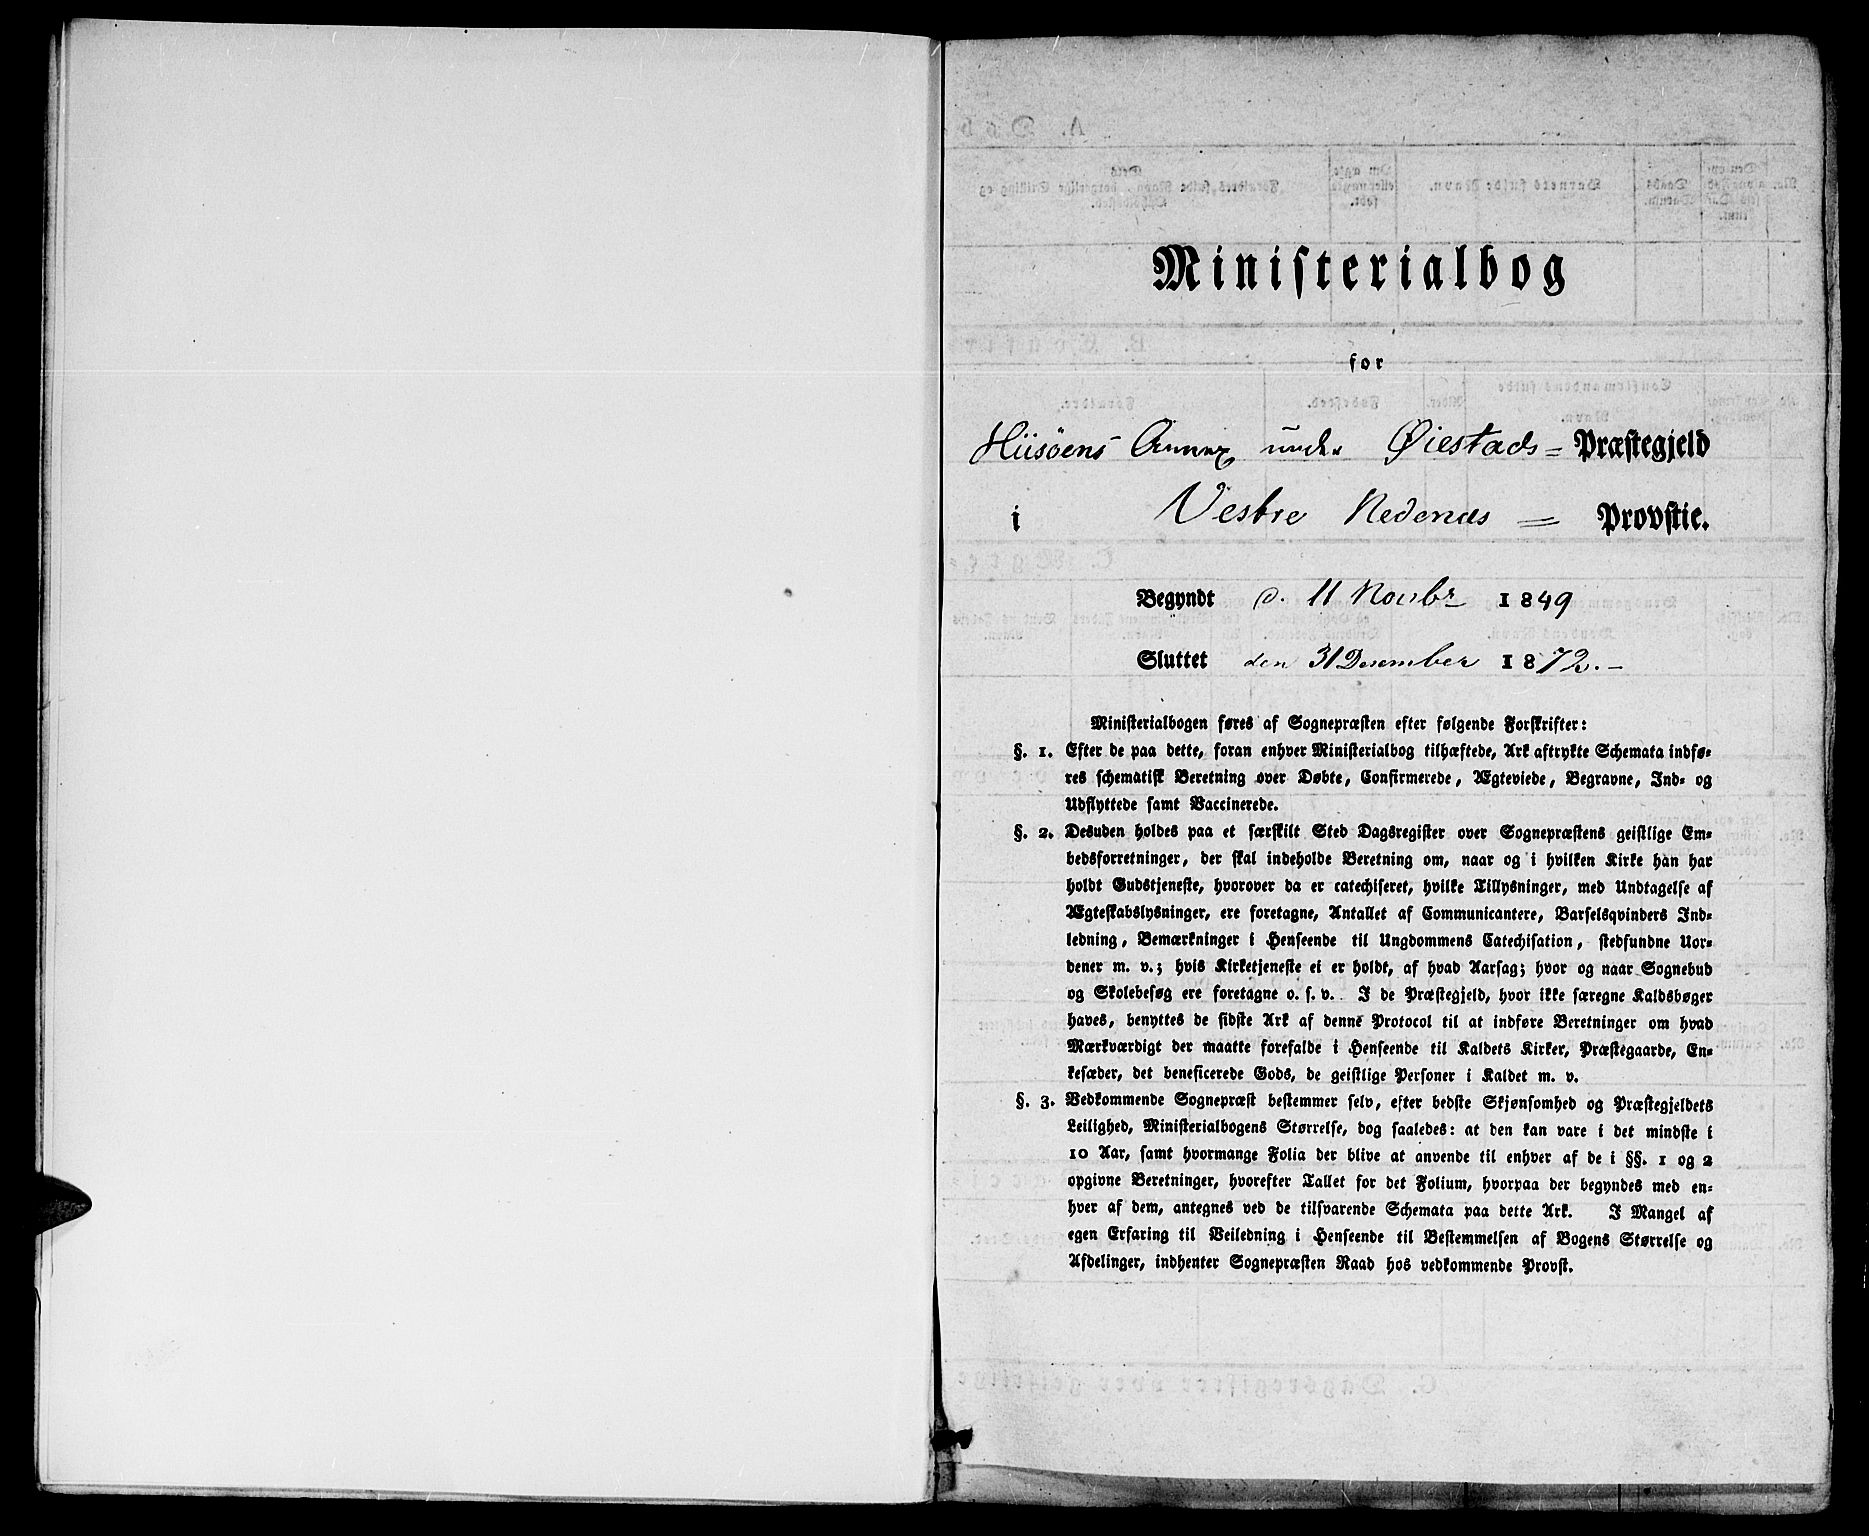 Ministerialbog
for
Hüsöens Annex under Øiestads = Præstegjeld
i Vestre Nedenæs = Provstie.
Begyndt d. 11 Novbr 1849
Sluttet den 31 Desember 1872. –
Ministerialbogen føres af Sognepræsten efter følgende Forskrifter:
§. 1. Efter de paa dette, foran enhver Ministerialbog tilhæftede, Ark aftrykte Schemata indfø=
res schematisk Beretning over Døbte, Confirmerede, Ægteviede, Begravne, Ind= og
Udflyttede samt Vaccinerede.
§. 2. Desuden holdes paa et særskilt Sted Dagsregister over Sognepræstens geistlige Em=
bedsforretninger, der skal indeholde Beretning om, naar og i hvilken Kirke han har
holdt Gudstjeneste, hvorover da er catechiseret, hvilke Tillysninger, med Undtagelse af
Ægteskabslysninger, ere foretagne, Antallet af Communicantere, Barselsqvinders Ind=
ledning, Bemærkninger i Henseende til Ungdommens Catechisation, stedfundne Uor=
dener m. v.; hvis Kirketjeneste ei er holdt, af hvad Aarsag; hvor og naar Sognebud
og Skolebesøg ere foretagne o. s. v. I de Præstegjeld, hvor ikke særegne Kaldsbøger
haves, benyttes de sidste Ark af denne Protocol til at indføre Beretninger om hvad
Mærkværdigt der maatte forefalde i Henseende til Kaldets Kirker, Præstegaarde, En=
kesæder, det beneficerede Gods, de geistlige Personer i Kaldet m. v.
§. 3. Vedkommende Sognepræst bestemmer selv, efter bedste Skjønsomhed og Præstegjeldets
Leilighed, Ministerialbogens Størrelse, dog saaledes: at den kan vare i det mindste i
10 Aar, samt hvormange Folia der blive at anvende til enhver af de i §§. 1 og 2
opgivne Beretninger, hvorefter Tallet for det Folium, hvorpaa der begyndes med en=
hver af dem, antegnes ved de tilsvarende Schemata paa dette Ark. I Mangel af
egen Erfaring til Veiledning i Henseende til Bestemmelsen af Bogens Størrelse og
Afdelinger, indhenter Sognepræsten Raad hos vedkommende Provst.